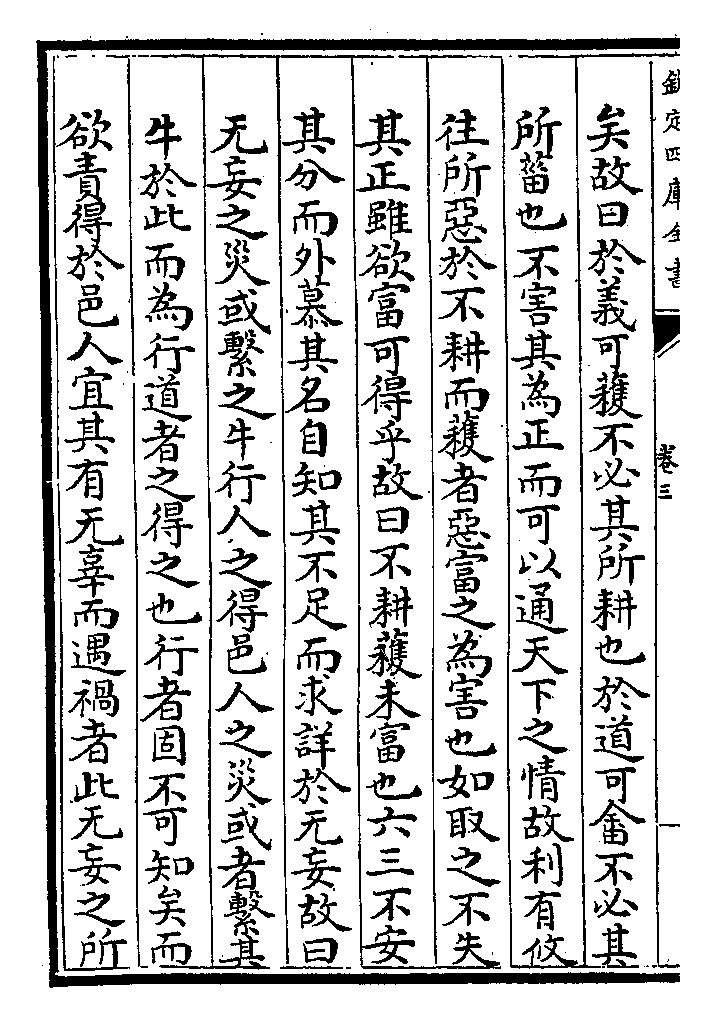 欽定四庫全書
卷三
矣故曰於義可穫不必其所耕也於道可畬不必其
所菑也不害其為正而可以通天下之情故利有攸
往所惡於不耕而穫者惡富之為害也如取之不失
其正雖欲富可得乎故曰不耕穫未富也六三不安
其分而外慕其名自知其不足而求詳於无妄故曰
无妄之災或繫之牛行人之得邑人之災或者繫其
牛於此而為行道者之得之也行者固不可知矣而
欲責得於邑人宜其有无辜而遇禍者此无妄之所